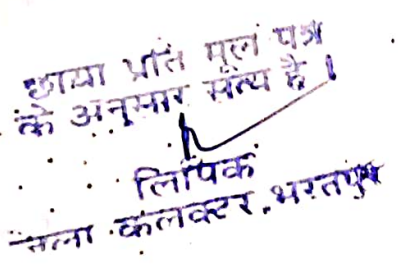 छाया प्रति मूल पत्र
के अनुसार सत्य है ।
लिपिक
जिला कलक्टर, भरतपुर